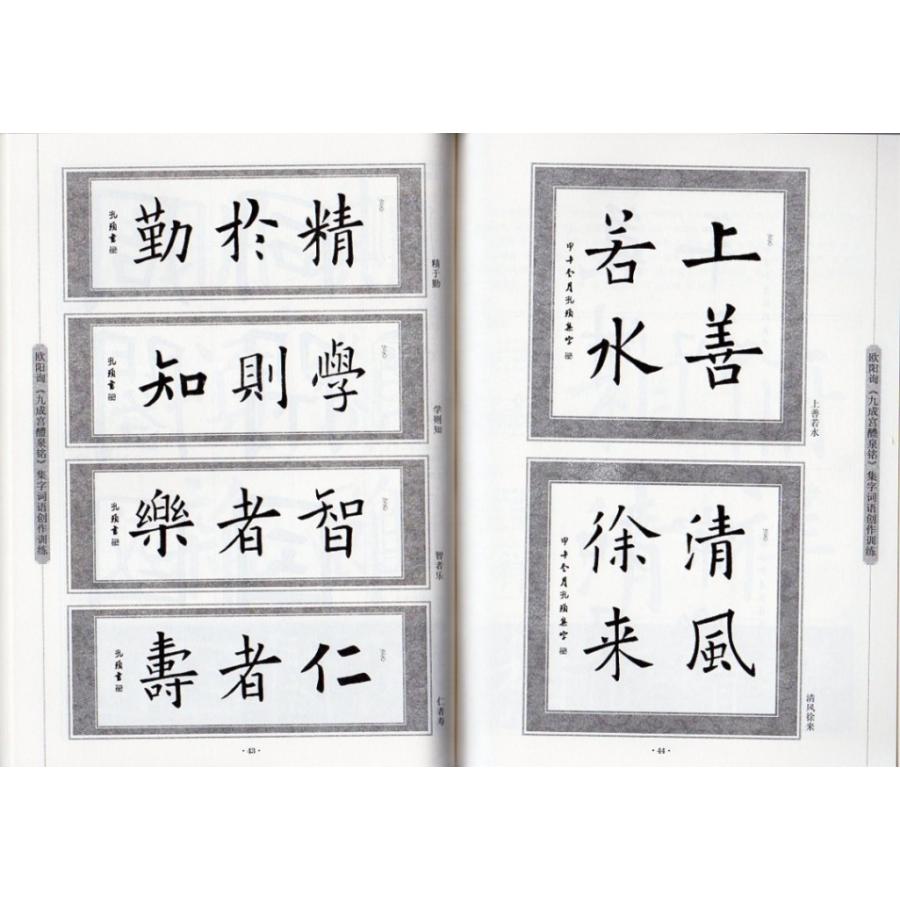 欧阳询《九成宫醴泉铭》集字词语创作训练
精於勤
孔頊書
精于勤
學則知
孔頊書
学则知
智者樂
孔頊書
智者乐
仁者壽
孔頊書
仁者寿
·43·
上善
若水
甲午冬月孔頊集字
上善若水
清風
徐来
甲午冬月孔頊集字
清风徐来
·44·
欧阳询《九成宫醴泉铭》集字词语创作训练